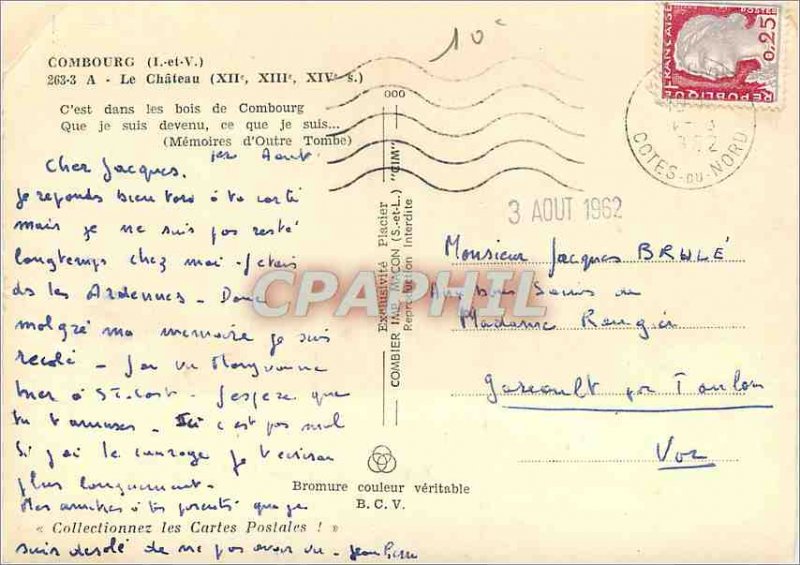 COMBOURG (I.-et-V.)
263-3 A - Le Château (XIIe, XIIIe, XIVe s.)
C'est dans les bois de Combourg
Que je suis devenu, ce que je suis...
(Mémoires d'Outre Tombe)
1er Aout
Cher Jacques.
Je reponds bien tard à ta carte
mais je ne suis pas resté
longtemps chez moi - J'etais
ds les Ardennes - Donc
malgré ma memoire je suis
recalé - J'ai vu
hier à St. Cast - J'espere que
tu t'amuses - Ici c'est pas mal
Si j'ai le courage je t'ecrirai
plus longuement -
Mes amities à tes parents que je
« Collectionnez les Cartes Postales ! »
suis desolé de ne pas avoir vu - Jean Pierre
Exclusivité Placier
COMBIER IMP. MACON (S.-et-L.) "CIM"
Reproduction Interdite
Bromure couleur véritable
B.C.V.
10c
RÉPUBLIQUE FRANÇAISE
POSTES
0,25
COTES-DU-NORD
3 AOUT 1962
Monsieur Jacques BRULÉ
Aux bons Soins de
Madame Rougier
Gareoult par Toulon
Var
CPAPHIL